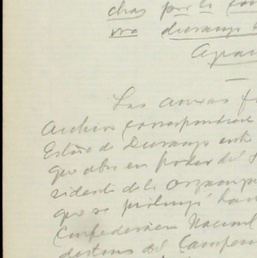 chas por la Con
rra durango
Agra
Las anexas f
Archivo correspondiente
Estado de Durango entre
que obra en poder del P
sidente de la organiza
que se prolonga has
Confederación Nacional
destinos del Campesin